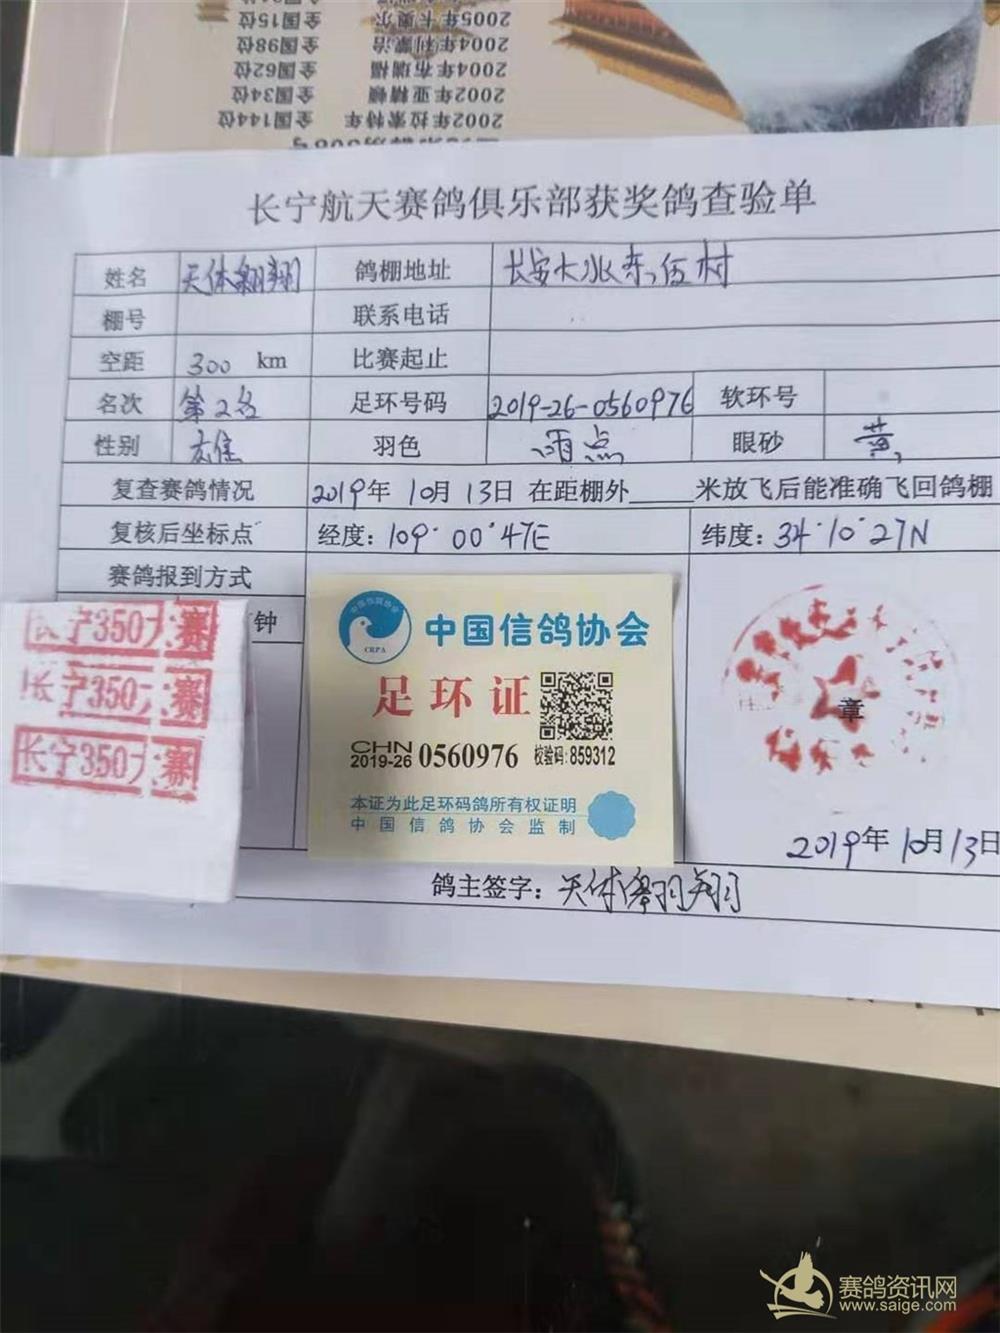 全国15位 2005年卡奥尔
全国98位 2004年利蒙治
全国62位 2004年布瑞福
全国34位 2002年亚精顿
全国144位 2002年拉索特年
长宁航天赛鸽俱乐部获奖鸽查验单
姓名 天体翱翔 鸽棚地址 长安大兆东伍村
棚号 联系电话
空距 300 km 比赛起止
名次 第2名 足环号码 2019-26-0560976 软环号
性别 雄 羽色 雨点 眼砂 黄
复查赛鸽情况 2019年 10月 13日 在距棚外____米放飞后能准确飞回鸽棚
复核后坐标点 经度: 109°00'47E 纬度: 34°10'27N
赛鸽报到方式
钟
长宁350 赛
长宁350 赛
长宁350 赛
中国信鸽协会
CRPA
足环证
CHN
2019-26 0560976 校验码:859312
本证为此足环码鸽所有权证明
中国信鸽协会监制
章
2019年 10月 13日
鸽主签字: 天体翱翔
赛鸽资讯网
www.saige.com